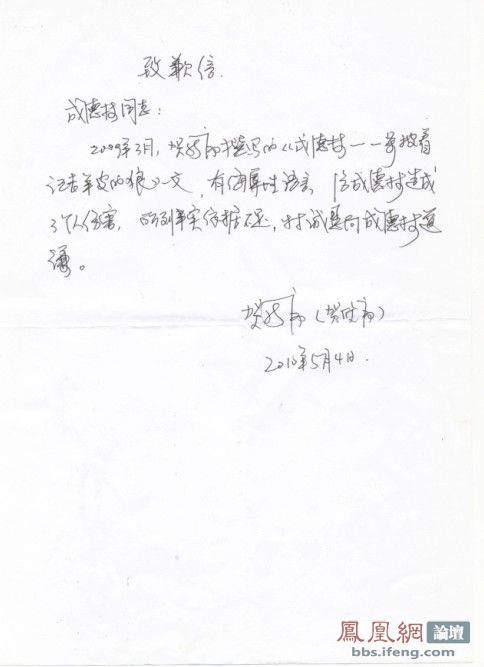 致歉信.
成德林同志：
2009年3月，贺 撰写的《成德林——一条披着
记者羊皮的狼》一文，有侮辱性语言，给成德林造成
了个人伤害，所列事实依据不足，特诚恳向成德林道
谦。
贺 
2010年5月4日.
鳳凰網 論壇
bbs.ifeng.com